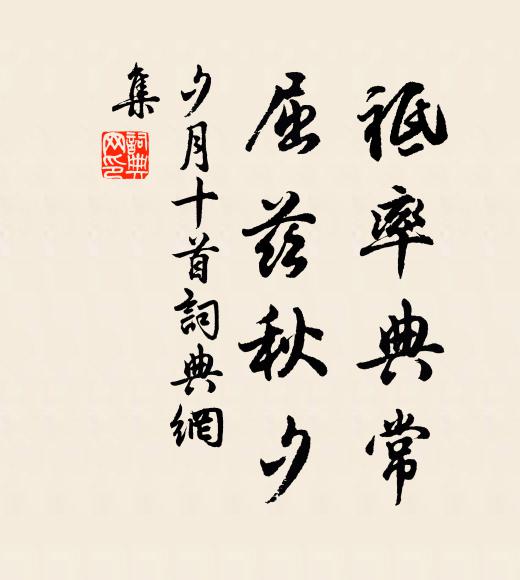 祗率典常
屆茲秋夕
夕月十首詞典網
集
詞典
网印